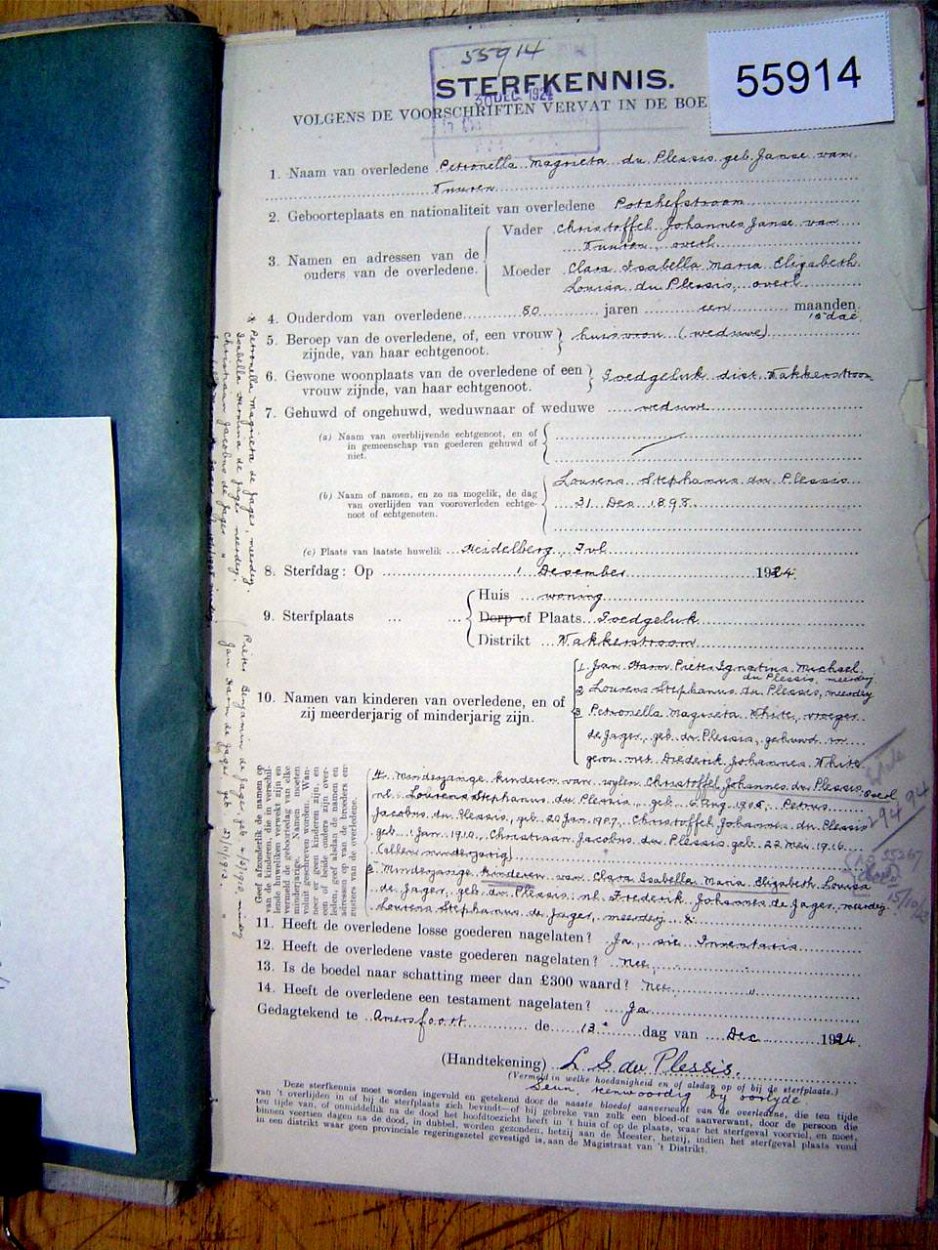 55914
55914
STERFKENNIS.
30 DEC 1924
VOLGENS DE VOORSCHRIFTEN VERVAT IN DE BOE
1. Naam van overledene Petronella Magrieta du Plessis geb. Janse van
Tuuren
2. Geboorteplaats en nationaliteit van overledene Potchefstroom
3. Namen en adressen van de ouders van de overledene.
Vader Christoffel Johannes Janse van
Tuuren, overl.
Moeder Clara Isabella Maria Elizabeth
Louisa du Plessis, overl
4. Ouderdom van overledene 80 jaren een maanden
15 dae
5. Beroep van de overledene, of, een vrouw
zijnde, van haar echtgenoot. huisvrou (weduwe)
6. Gewone woonplaats van de overledene of een
vrouw zijnde, van haar echtgenoot. Goedgeluk dist. Wakkerstroom
7. Gehuwd of ongehuwd, weduwnaar of weduwe weduwe
(a) Naam van overblijvende echtgenoot, en of
in gemeenschap van goederen gehuwd of
niet.
(b) Naam of namen, en zo na mogelik, de dag
van overlijden van vooroverleden echtge-
noot of echtgenoten.
Lourens Stephanus du Plessis
31 Des 1898
(c) Plaats van laatste huwelik Heidelberg, Tvl
8. Sterfdag: Op 1 Desember 1924.
9. Sterfplaats ... ...
Huis woning
Dorp of Plaats Goedgeluk
Distrikt Wakkerstroom
10. Namen van kinderen van overledene, en of
zij meerderjarig of minderjarig zijn.
1. Jan Harm Pieter Ignatius Michael
du Plessis, meerderj
2 Lourens Stephanus du Plessis, meerderj
3 Petronella Magrieta White, vroeger
de Jager, geb. du Plessis, gehuwd in
gem. met Diederik Johannes White
Geef afzonderlik de namen op
van de kinderen, die in verschil-
lende huwelikken verwekt zijn en
vermeld de geboortedag van elke
minderjarige. Namen moeten
voluit geschreven worden. Wan-
neer er geen kinderen zijn, en
een of beide ouders zijn over-
leden, geef alsdan de namen en
adressen op van de broeders en
zusters van de overledene.
4. Minderjarige kinderen van wylen Christoffel Johannes du Plessis, overl
nl. Lourens Stephanus du Plessis, geb. 6 Aug. 1905, Petrus
Jacobus du Plessis, geb. 20 Jan 1907, Christoffel Johannes du Plessis
geb. 1 Jan. 1910, Christiaan Jacobus du Plessis geb. 22 Mei 1916.
(allen minderjarig)
5 Minderjarige kinderen van Clara Isabella Maria Elizabeth Louisa
de Jager, geb. du Plessis nl. Frederik Johannes de Jager, meerderj
Lourens Stephanus de Jager, meerderj &
11. Heeft de overledene losse goederen nagelaten? Ja, sien Inventaris
12. Heeft de overledene vaste goederen nagelaten? Nee
13. Is de boedel naar schatting meer dan £300 waard? Nee "
14. Heeft de overledene een testament nagelaten? Ja
Gedagtekend te Amersfoort de 13e dag van Dec 1924.
(Handtekening) L S du Plessis.
(Vermeld in welke hoedanigheid en of alsdag op of bij de sterfplaats.)
Seun teenwoordig by oorlyde
Deze sterfkennis moet worden ingevuld en getekend door de naaste bloedof aanverwant van de overledene, die ten tijde
van 't overlijden in of bij de sterfplaats zich bevindt—of bij gebreke van zulk een bloed-of aanverwant, door de persoon die
ten tijde van, of onmiddellik na de dood het hoofdtoezicht heeft in 't huis of op de plaats, waar het sterfgeval voorviel, en moet,
binnen veertien dagen na de dood, in dubbel, worden gezonden, hetzij aan de Meester, hetzij, indien het sterfgeval plaats vond
in een distrikt waar geen provinciale regeringszetel gevestigd is, aan de Magistraat van 't Distrikt.
* Petronella Magrieta de Jager, meerderj.
Isabella de Jager meerderj.
Christiaan Jacobus de Jager "
Pieter Benjamin de Jager geb 1910 minorj
Jan Harm de Jager geb. 21/11/1912. "